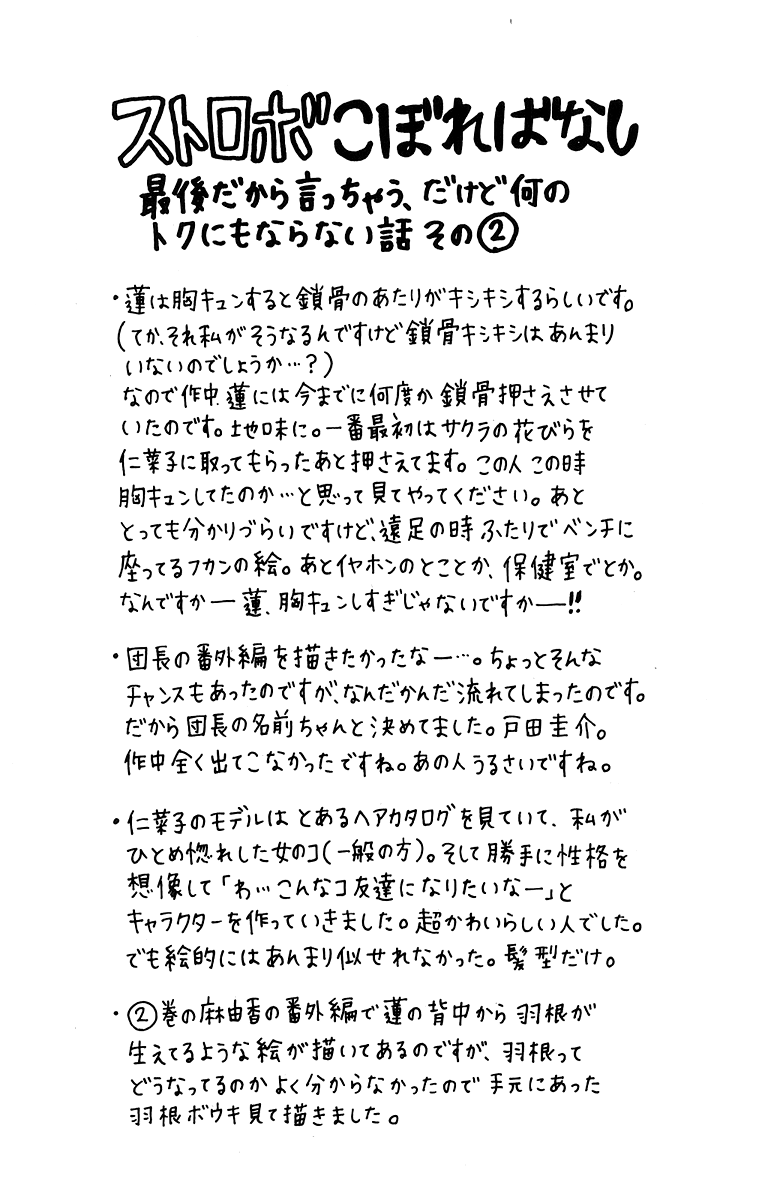 ストロボこぼればなし
最後だから言っちゃう、だけど何の
トクにもならない話 その②
・蓮は胸キュンすると鎖骨のあたりがキシキシするらしいです。
(てか、それ私がそうなるんですけど鎖骨キシキシはあんまり
いないのでしょうか…?)
なので作中、蓮には今までに何度か鎖骨押さえさせて
いたのです。地味に。一番最初はサクラの花びらを
仁菜子に取ってもらったあと押さえてます。この人この時
胸キュンしてたのか…と思って見てやってください。あと
とっても分かりづらいですけど、遠足の時ふたりでベンチに
座ってるフカンの絵。あとイヤホンのとことか、保健室でとか。
なんですかー蓮、胸キュンしすぎじゃないですかー!!
・団長の番外編を描きたかったなー…。ちょっとそんな
チャンスもあったのですが、なんだかんだ流れてしまったのです。
だから団長の名前ちゃんと決めてました。戸田圭介。
作中全く出てこなかったですね。あの人うるさいですね。
・仁菜子のモデルは とあるヘアカタログを見ていて、私が
ひとめ惚れした女のコ(一般の方)。そして勝手に性格を
想像して「わぃ こんなコ友達になりたいなー」と
キャラクターを作っていきました。超かわいらしい人でした。
でも絵的にはあんまり似せれなかった。髪型だけ。
・②巻の麻由香の番外編で蓮の背中から羽根が
生えてるような絵が描いてあるのですが、羽根って
どうなってるのかよく分からなかったので手元にあった
羽根ボウキ見て描きました。